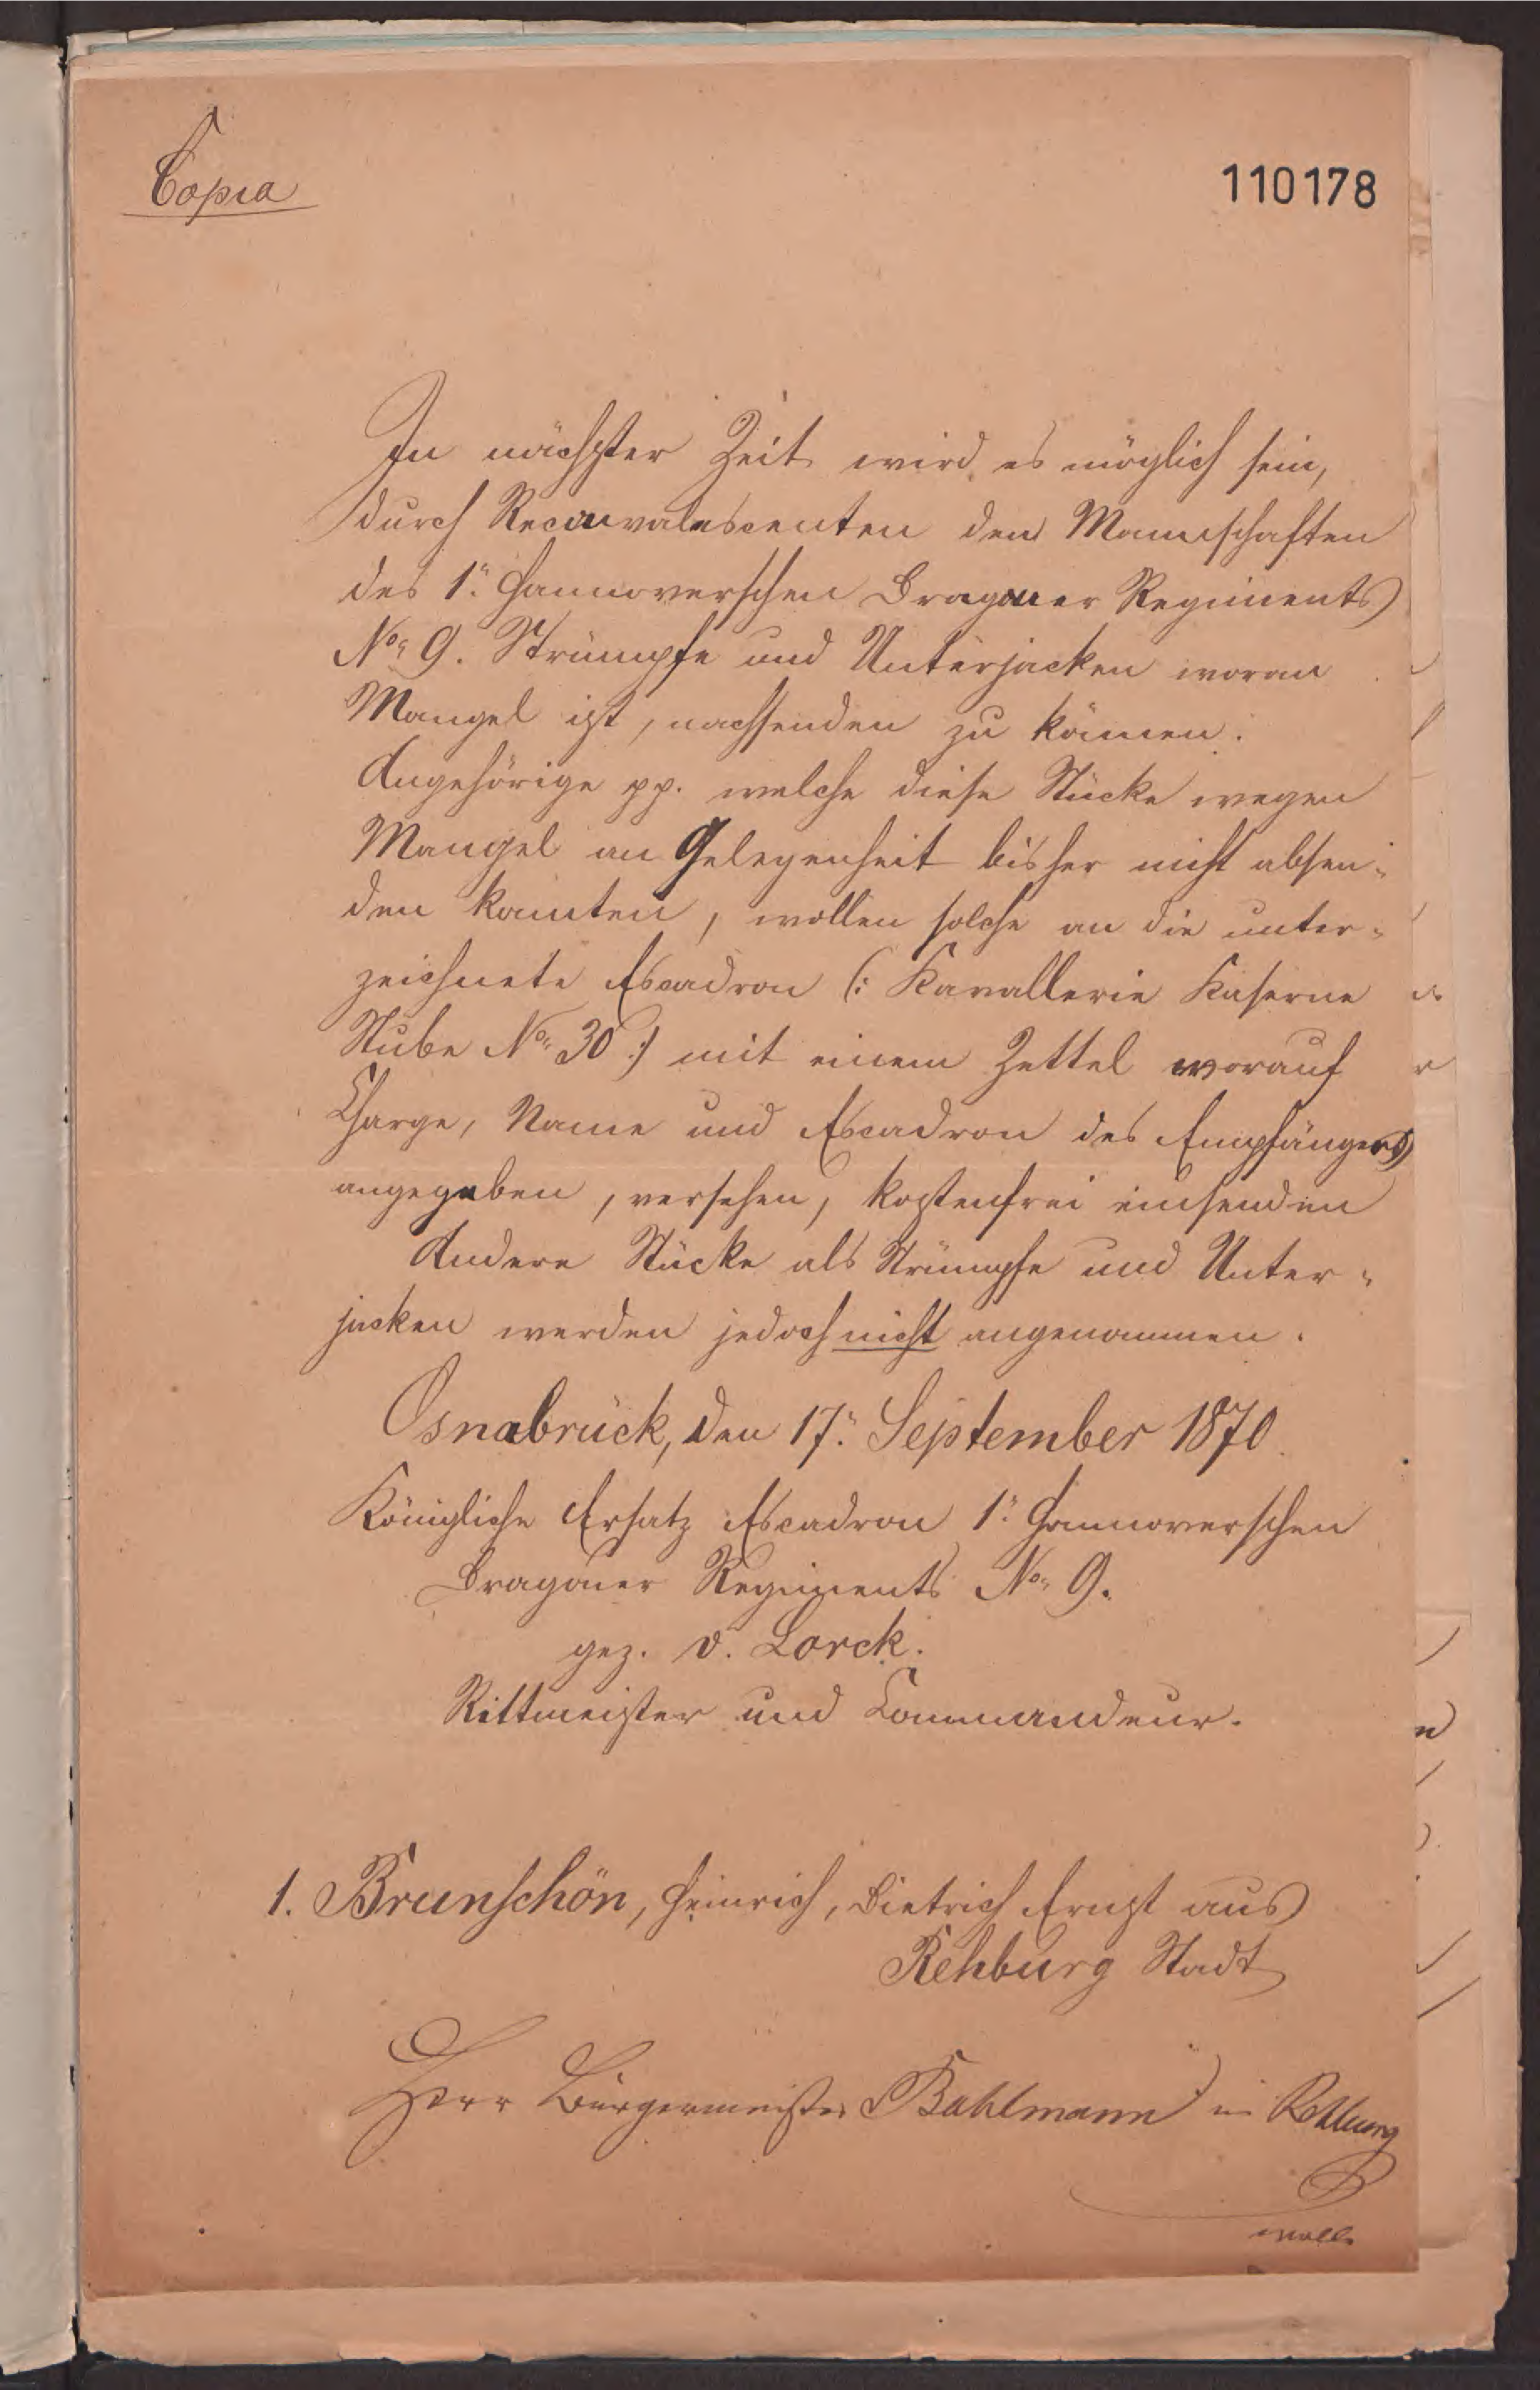 Copia
110178
In nächster Zeit wird es möglich sein,
durch Reconvalescenten den Mannschaften
des 1. Hannoverschen Dragoner Regiments
No 9. Strümpfe und Unterjacken woran
Mangel ist, nachsenden zu können.
Angehörige pp. welche diese Stücke wegen
Mangel an Gelegenheit bisher nicht absen-
den konnten, wollen solche an die unter-
zeichnete Escadron (: Kavallerie Kaserne
Stube No 30 :) mit einem Zettel worauf
Charge, Name und Escadron des Empfängers
angegeben, versehen, kostenfrei einsenden
Andere Stücke als Strümpfe und Unter-
jacken werden jedoch nicht angenommen.
Osnabrück, den 17. September 1870.
Königliche Ersatz Escadron 1. Hannoverschen
Dragoner Regiments No 9.
gez. v. Lorck.
Rittmeister und Commandeur.
1. Brunschön, Heinrich, Dietrich Ernst aus
Rehburg Stadt
Herr Bürgermeister Bahlmann in Rehburg